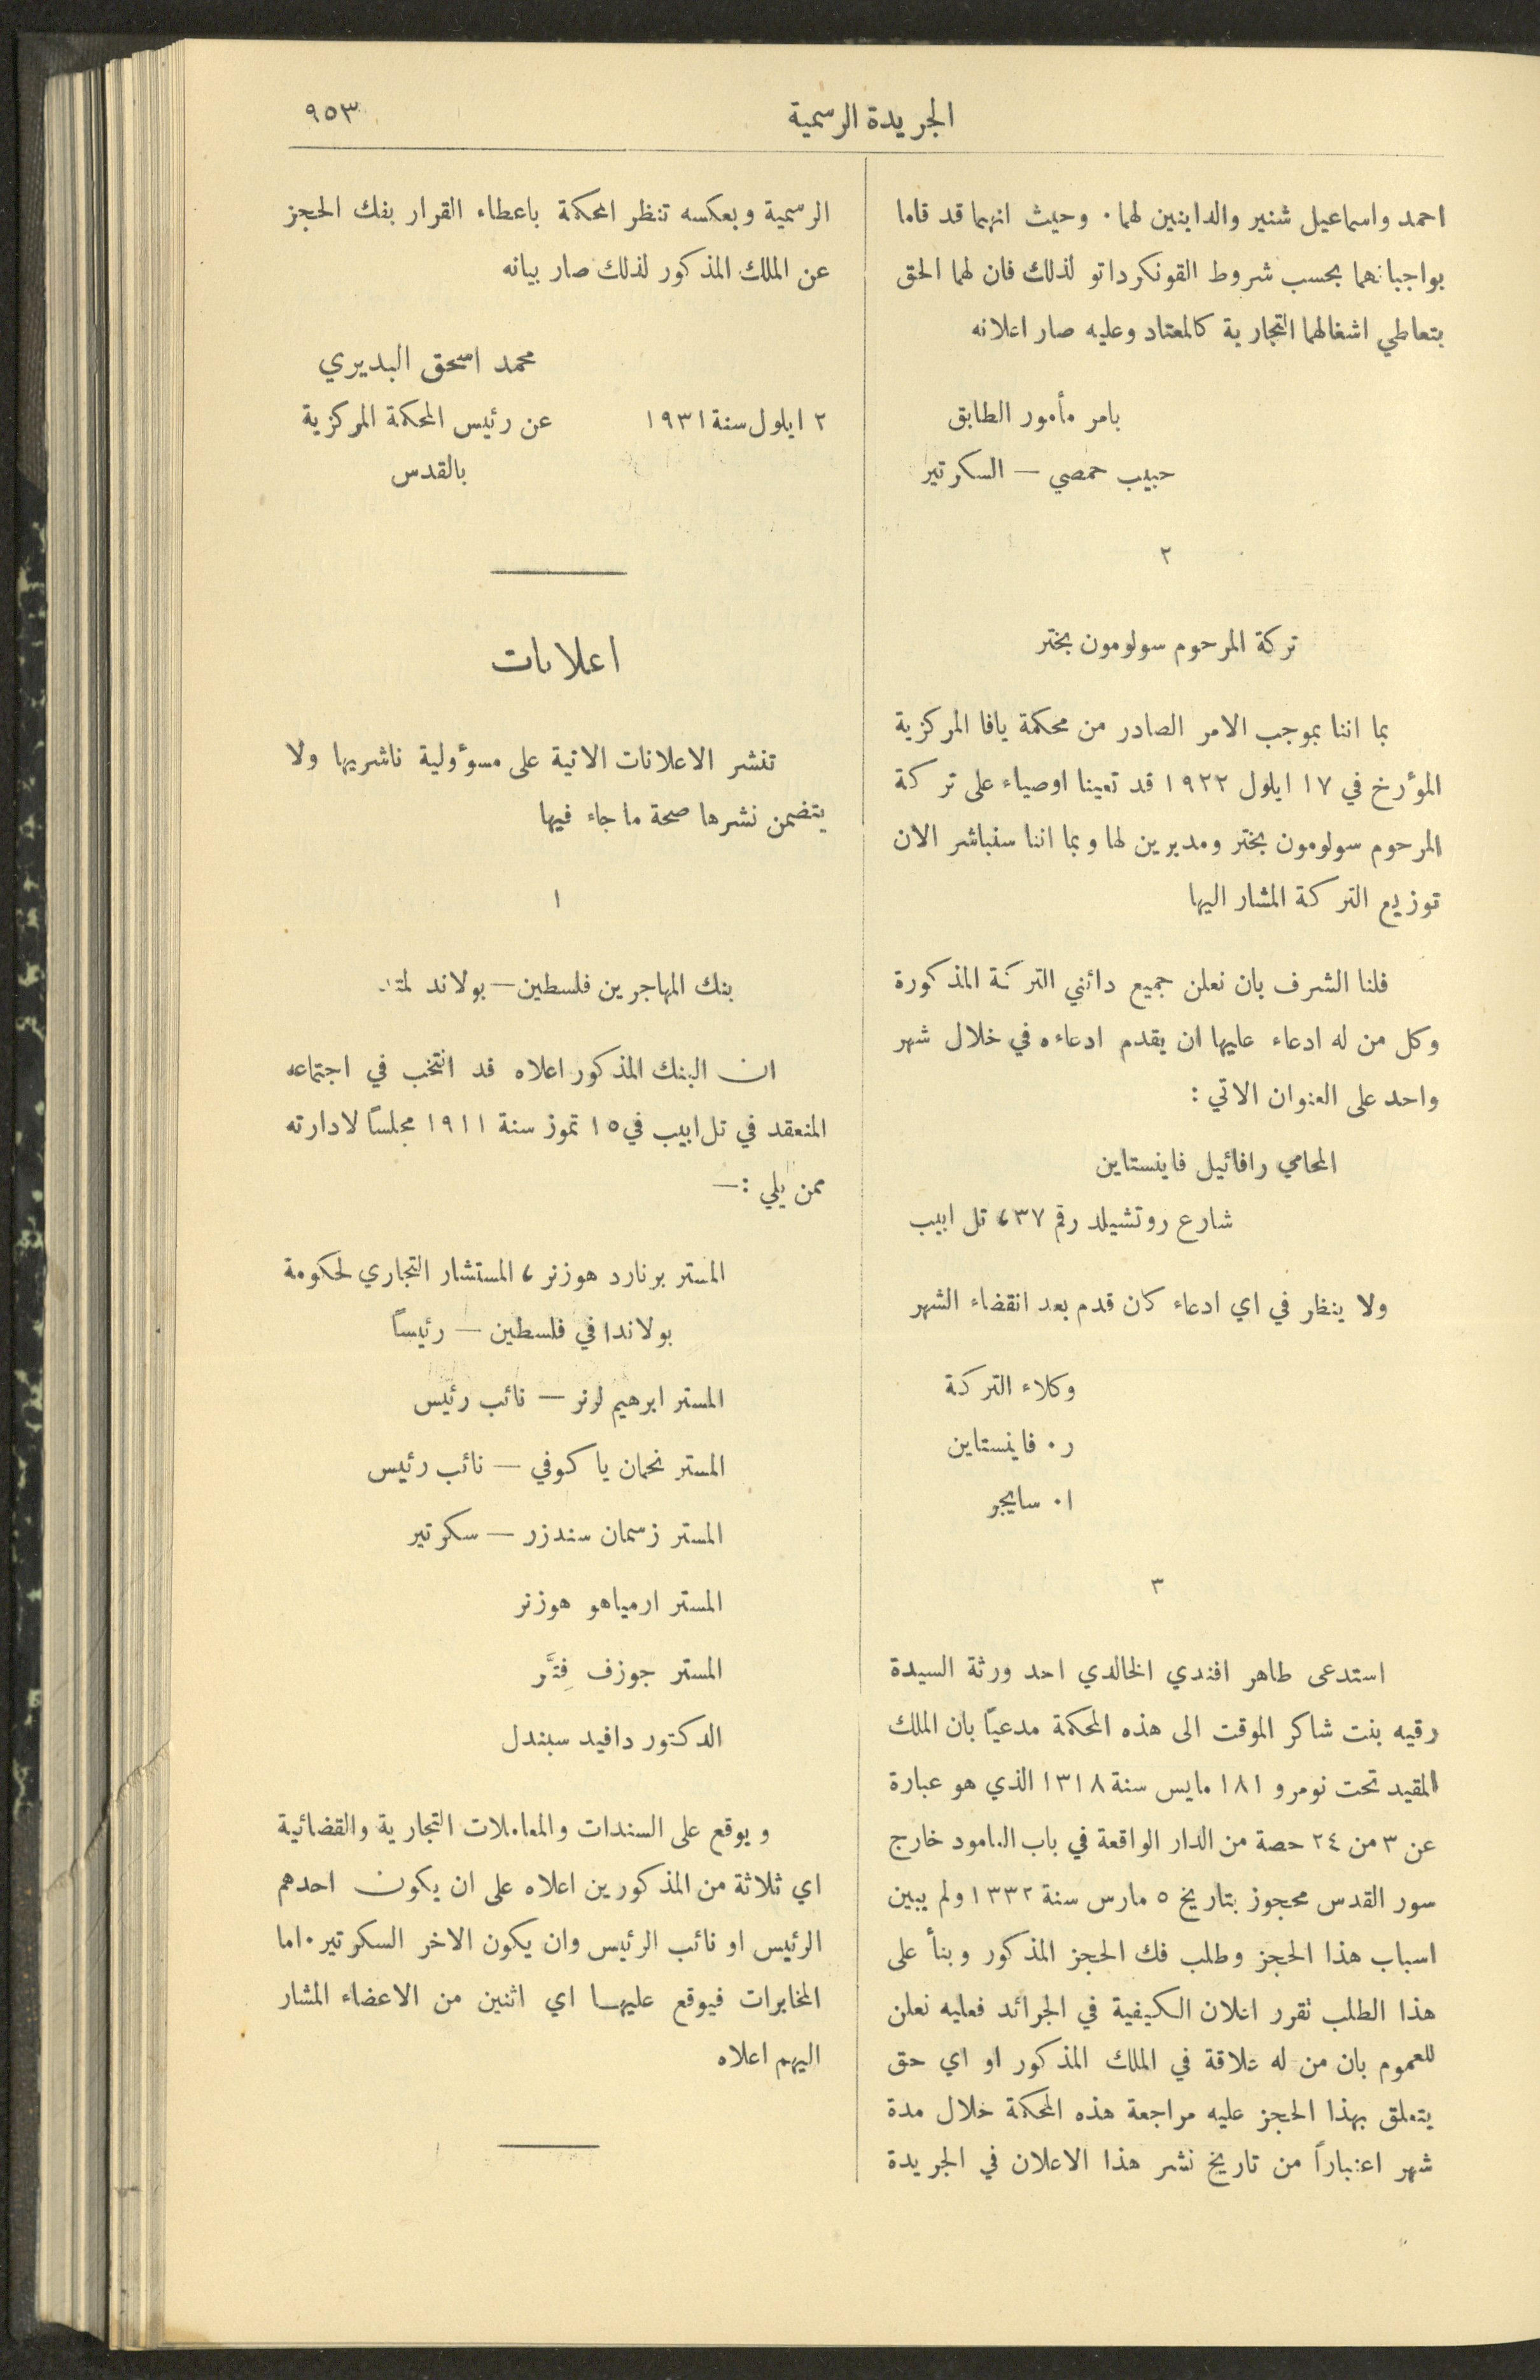 الجريدة الرسمية
٩٥٣
احمد واسماعيل شنير والداينين لهما. وحيث انهما قد قاما
بواجباتهما بحسب شروط القونكرداتو لذلك فان لهما الحق
بتعاطي اشغالهما التجارية كالمعتاد وعليه صار اعلانه
بامر مأمور الطابق
حبيب حمصي — السكرتير
٢
تركة المرحوم سولومون بختر
بما اننا بموجب الامر الصادر من محكمة يافا المركزية
المؤرخ في ١٧ ايلول ١٩٢٢ قد تعينا اوصياء على تركة
المرحوم سولومون بختر ومديرين لها وبما اننا سنباشر الان
توزيع التركة المشار اليها
فلنا الشرف بان نعلن جميع دائني التركة المذكورة
وكل من له ادعاء عليها ان يقدم ادعاءه في خلال شهر
واحد على العنوان الاتي :
المحامي رافائيل فاينستاين
شارع روتشيلد رقم ٣٧، تل ابيب
ولا ينظر في اي ادعاء كان قدم بعد انقضاء الشهر
وكلاء التركة
ر. فاينستاين
ا. سايجر
٣
استدعى طاهر افندي الخالدي احد ورثة السيدة
رقيه بنت شاكر الموقت الى هذه المحكمة مدعياً بان الملك
المقيد تحت نومرو ١٨١ مايس سنة ١٣١٨ الذي هو عبارة
عن ٣ من ٢٤ حصة من الدار الواقعة في باب العامود خارج
سور القدس محجوز بتاريخ ٥ مارس سنة ١٣٣٢ ولم يبين
اسباب هذا الحجز وطلب فك الحجز المذكور وبنأ على
هذا الطلب تقرر اعلان الكيفية في الجرائد فعليه نعلن
للعموم بان من له علاقة في الملك المذكور او اي حق
يتعلق بهذا الحجز عليه مراجعة هذه المحكمة خلال مدة
شهر اعتباراً من تاريخ نشر هذا الاعلان في الجريدة
الرسمية وبعكسه تنظر المحكمة باعطاء القرار بفك الحجز
عن الملك المذكور لذلك صار بيانه
محمد اسحق البديري
٢ ايلول سنة ١٩٣١ عن رئيس المحكمة المركزية
بالقدس
اعلانات
تنشر الاعلانات الاتية على مسؤولية ناشريها ولا
يتضمن نشرها صحة ما جاء فيها
١
بنك المهاجرين فلسطين — بولاند لمتد
ان البنك المذكور اعلاه قد انتخب في اجتماعه
المنعقد في تل ابيب في ١٥ تموز سنة ١٩١١ مجلساً لادارته
ممن يلي :—
المستر برنارد هوزنر، المستشار التجاري لحكومة
بولاندا في فلسطين — رئيساً
المستر ابرهيم لرنر — نائب رئيس
المستر نحمان ياكوفي — نائب رئيس
المستر زسمان سندزر — سكرتير
المستر ارمياهو هوزنر
المستر جوزف فِتَّر
الدكتور دافيد سبندل
ويوقع على السندات والمعاملات التجارية والقضائية
اي ثلاثة من المذكورين اعلاه على ان يكون احدهم
الرئيس او نائب الرئيس وان يكون الاخر السكرتير. اما
المخابرات فيوقع عليها اي اثنين من الاعضاء المشار
اليهم اعلاه